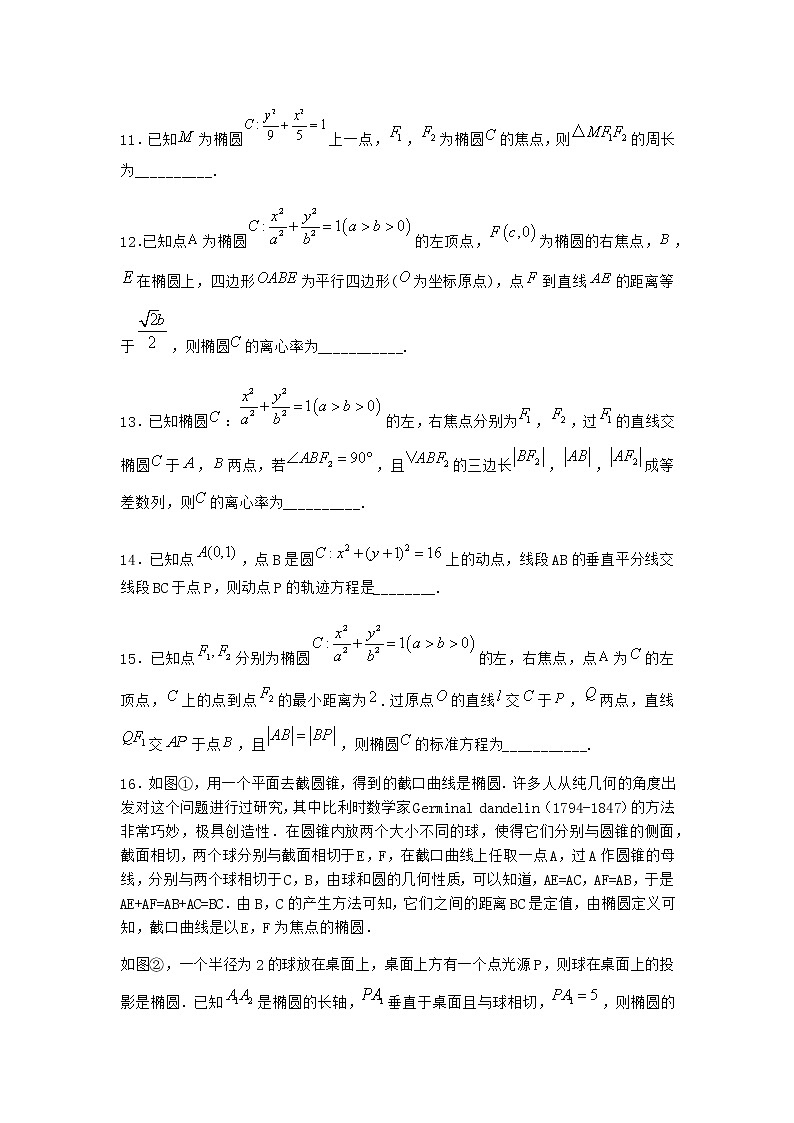 11.已知M为椭圆C:y²/9+x²/5=1上一点,F₁,F₂为椭圆C的焦点,则△MF₁F₂的周长
为__________.
12.已知点A为椭圆C:x²/a²+y²/b²=1(a>b>0)的左顶点,F(c,0)为椭圆的右焦点,B,
E在椭圆上,四边形OABE为平行四边形(O为坐标原点),点F到直线AE的距离等
于√2b/2,则椭圆C的离心率为___________.
13.已知椭圆C:x²/a²+y²/b²=1(a>b>0)的左,右焦点分别为F₁,F₂,过F₁的直线交
椭圆C于A,B两点,若∠ABF₂=90°,且∨ABF₂的三边长|BF₂|,|AB|,|AF₂|成等
差数列,则C的离心率为__________.
14.已知点A(0,1),点B是圆C:x²+(y+1)²=16上的动点,线段AB的垂直平分线交
线段BC于点P,则动点P的轨迹方程是________.
15.已知点F₁,F₂分别为椭圆C:x²/a²+y²/b²=1(a>b>0)的左,右焦点,点A为C的左
顶点,C上的点到点F₂的最小距离为2.过原点O的直线l交C于P,Q两点,直线
QF₁交AP于点B,且|AB|=|BP|,则椭圆C的标准方程为___________.
16.如图①,用一个平面去截圆锥,得到的截口曲线是椭圆.许多人从纯几何的角度出
发对这个问题进行过研究,其中比利时数学家Germinal dandelin(1794-1847)的方法
非常巧妙,极具创造性.在圆锥内放两个大小不同的球,使得它们分别与圆锥的侧面,
截面相切,两个球分别与截面相切于E,F,在截口曲线上任取一点A,过A作圆锥的母
线,分别与两个球相切于C,B,由球和圆的几何性质,可以知道,AE=AC,AF=AB,于是
AE+AF=AB+AC=BC.由B,C的产生方法可知,它们之间的距离BC是定值,由椭圆定义可
知,截口曲线是以E,F为焦点的椭圆.
如图②,一个半径为2的球放在桌面上,桌面上方有一个点光源P,则球在桌面上的投
影是椭圆.已知A₁A₂是椭圆的长轴,PA₁垂直于桌面且与球相切,PA₁=5,则椭圆的